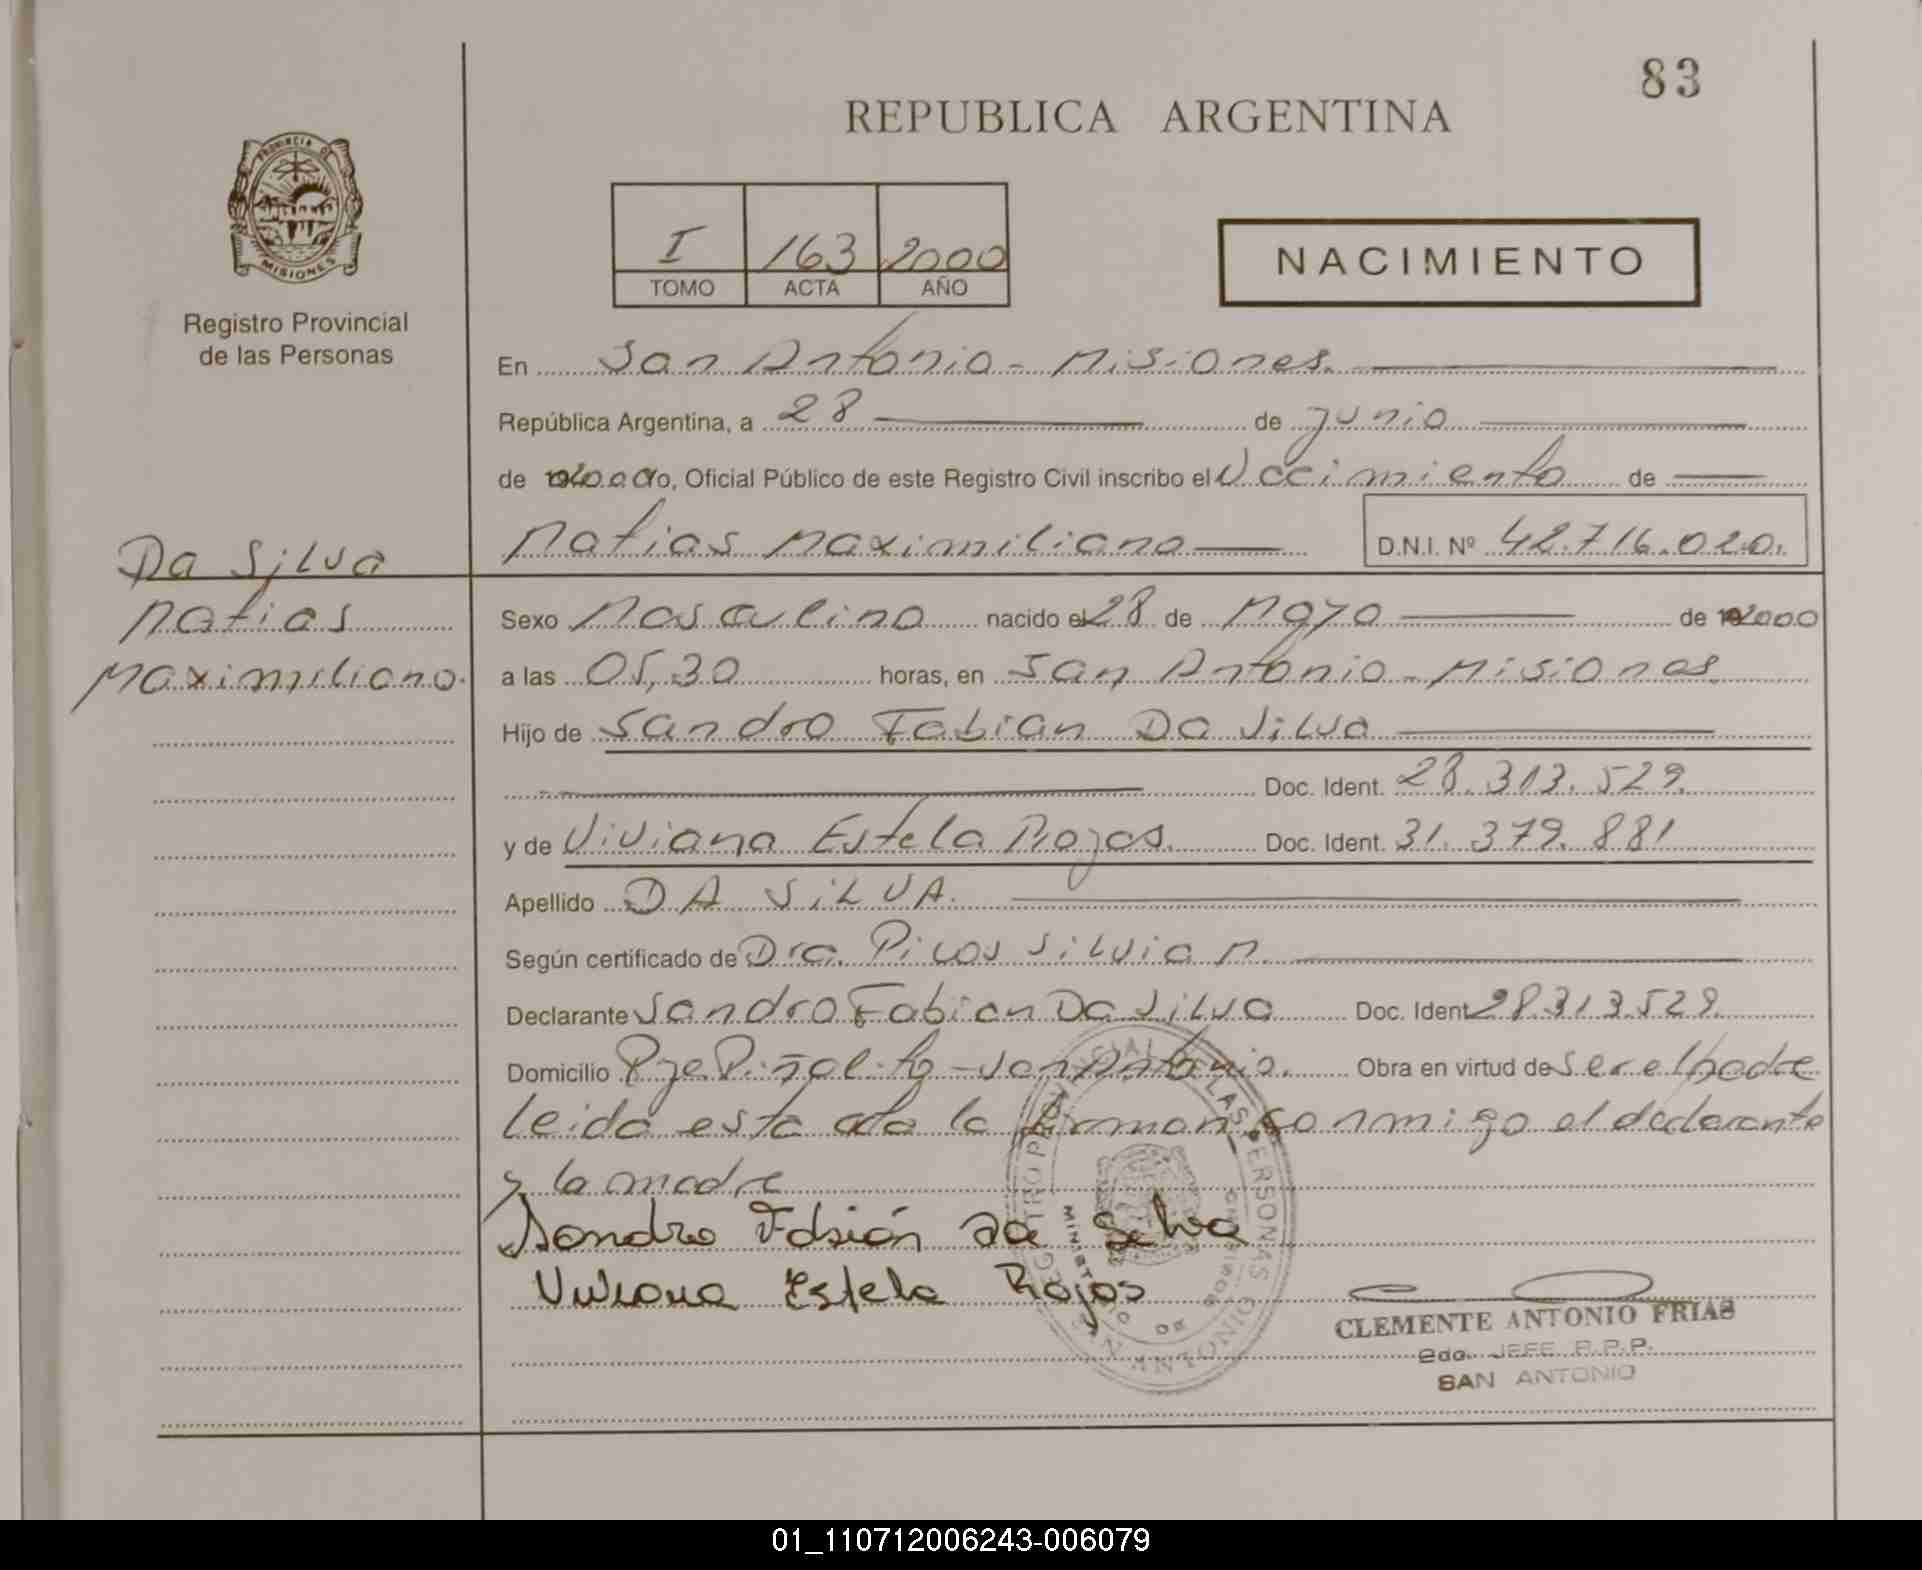 83
REPUBLICA ARGENTINA
PROVINCIA DE
MISIONES
Registro Provincial
de las Personas
I 163 2000
TOMO ACTA AÑO
NACIMIENTO
En San Antonio - Misiones.
República Argentina, a 28 de junio
de 2000 Yo, Oficial Público de este Registro Civil inscribo el Nacimiento de
Matias Maximiliano D.N.I. Nº 42.716.020.
Da Silva
Matias
Maximiliano.
Sexo Masculino nacido el 28 de Mayo de 2000
a las 05,30 horas, en San Antonio - Misiones.
Hijo de Sandro Fabian Da Silva
Doc. Ident. 28.313.529.
y de Viviana Estela Rojas. Doc. Ident. 31.379.881
Apellido DA SILVA.
Según certificado de Dra. Picos Silvia M.
Declarante Sandro Fabian Da Silva Doc. Ident 28.313.529.
Domicilio Pje Piñalito - San Antonio. Obra en virtud de ser el padre
leida esta acta la firman conmigo el declarante
y la madre
Sandro Fabián da Silva
Viviana Estela Rojas
REGISTRO PROVINCIAL DE LAS PERSONAS
SAN ANTONIO
CLEMENTE ANTONIO FRIAS
2do. JEFE R.P.P.
SAN ANTONIO
01_110712006243-006079